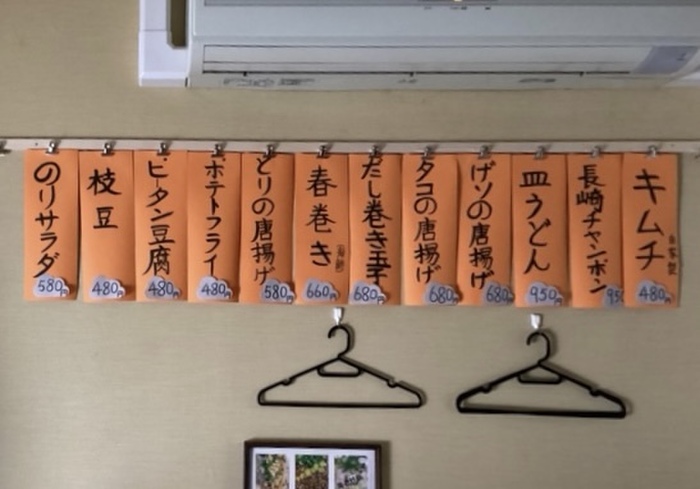 キムチ
自家製
480円
長崎チャンポン
950
皿うどん
950円
げソの唐揚げ
680
タコの唐揚げ
680円
だし巻き玉子
680円
春巻き
660円
とりの唐揚げ
580円
ポテトフライ
480円
ピータン豆腐
480円
枝豆
480円
のりサラダ
580円